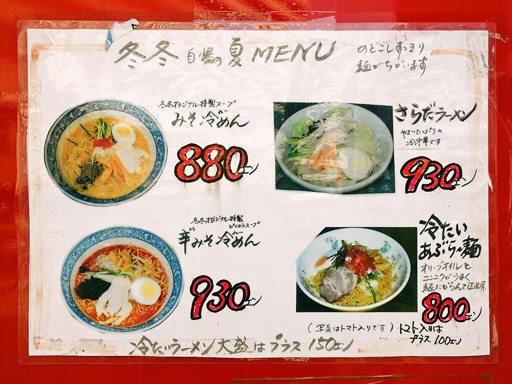 冬冬 自慢の 夏 MENU
のどごしすっきり
麺がちがいます
冬冬オリジナル特製スープ
みそ冷めん
880エン
さらだラーメン
やさいたっぷりの
冷し中華です
930エン
冬冬オリジナル特製
ピリ辛スープ
辛みそ冷めん
930エン
冷たい
あぶら麺
オリーブオイルと
ニンニクがうまく
麺にからんで
800エン
(写真はトマト入りです)
トマト入りは
プラス100エン
冷たいラーメン大盛はプラス150エン